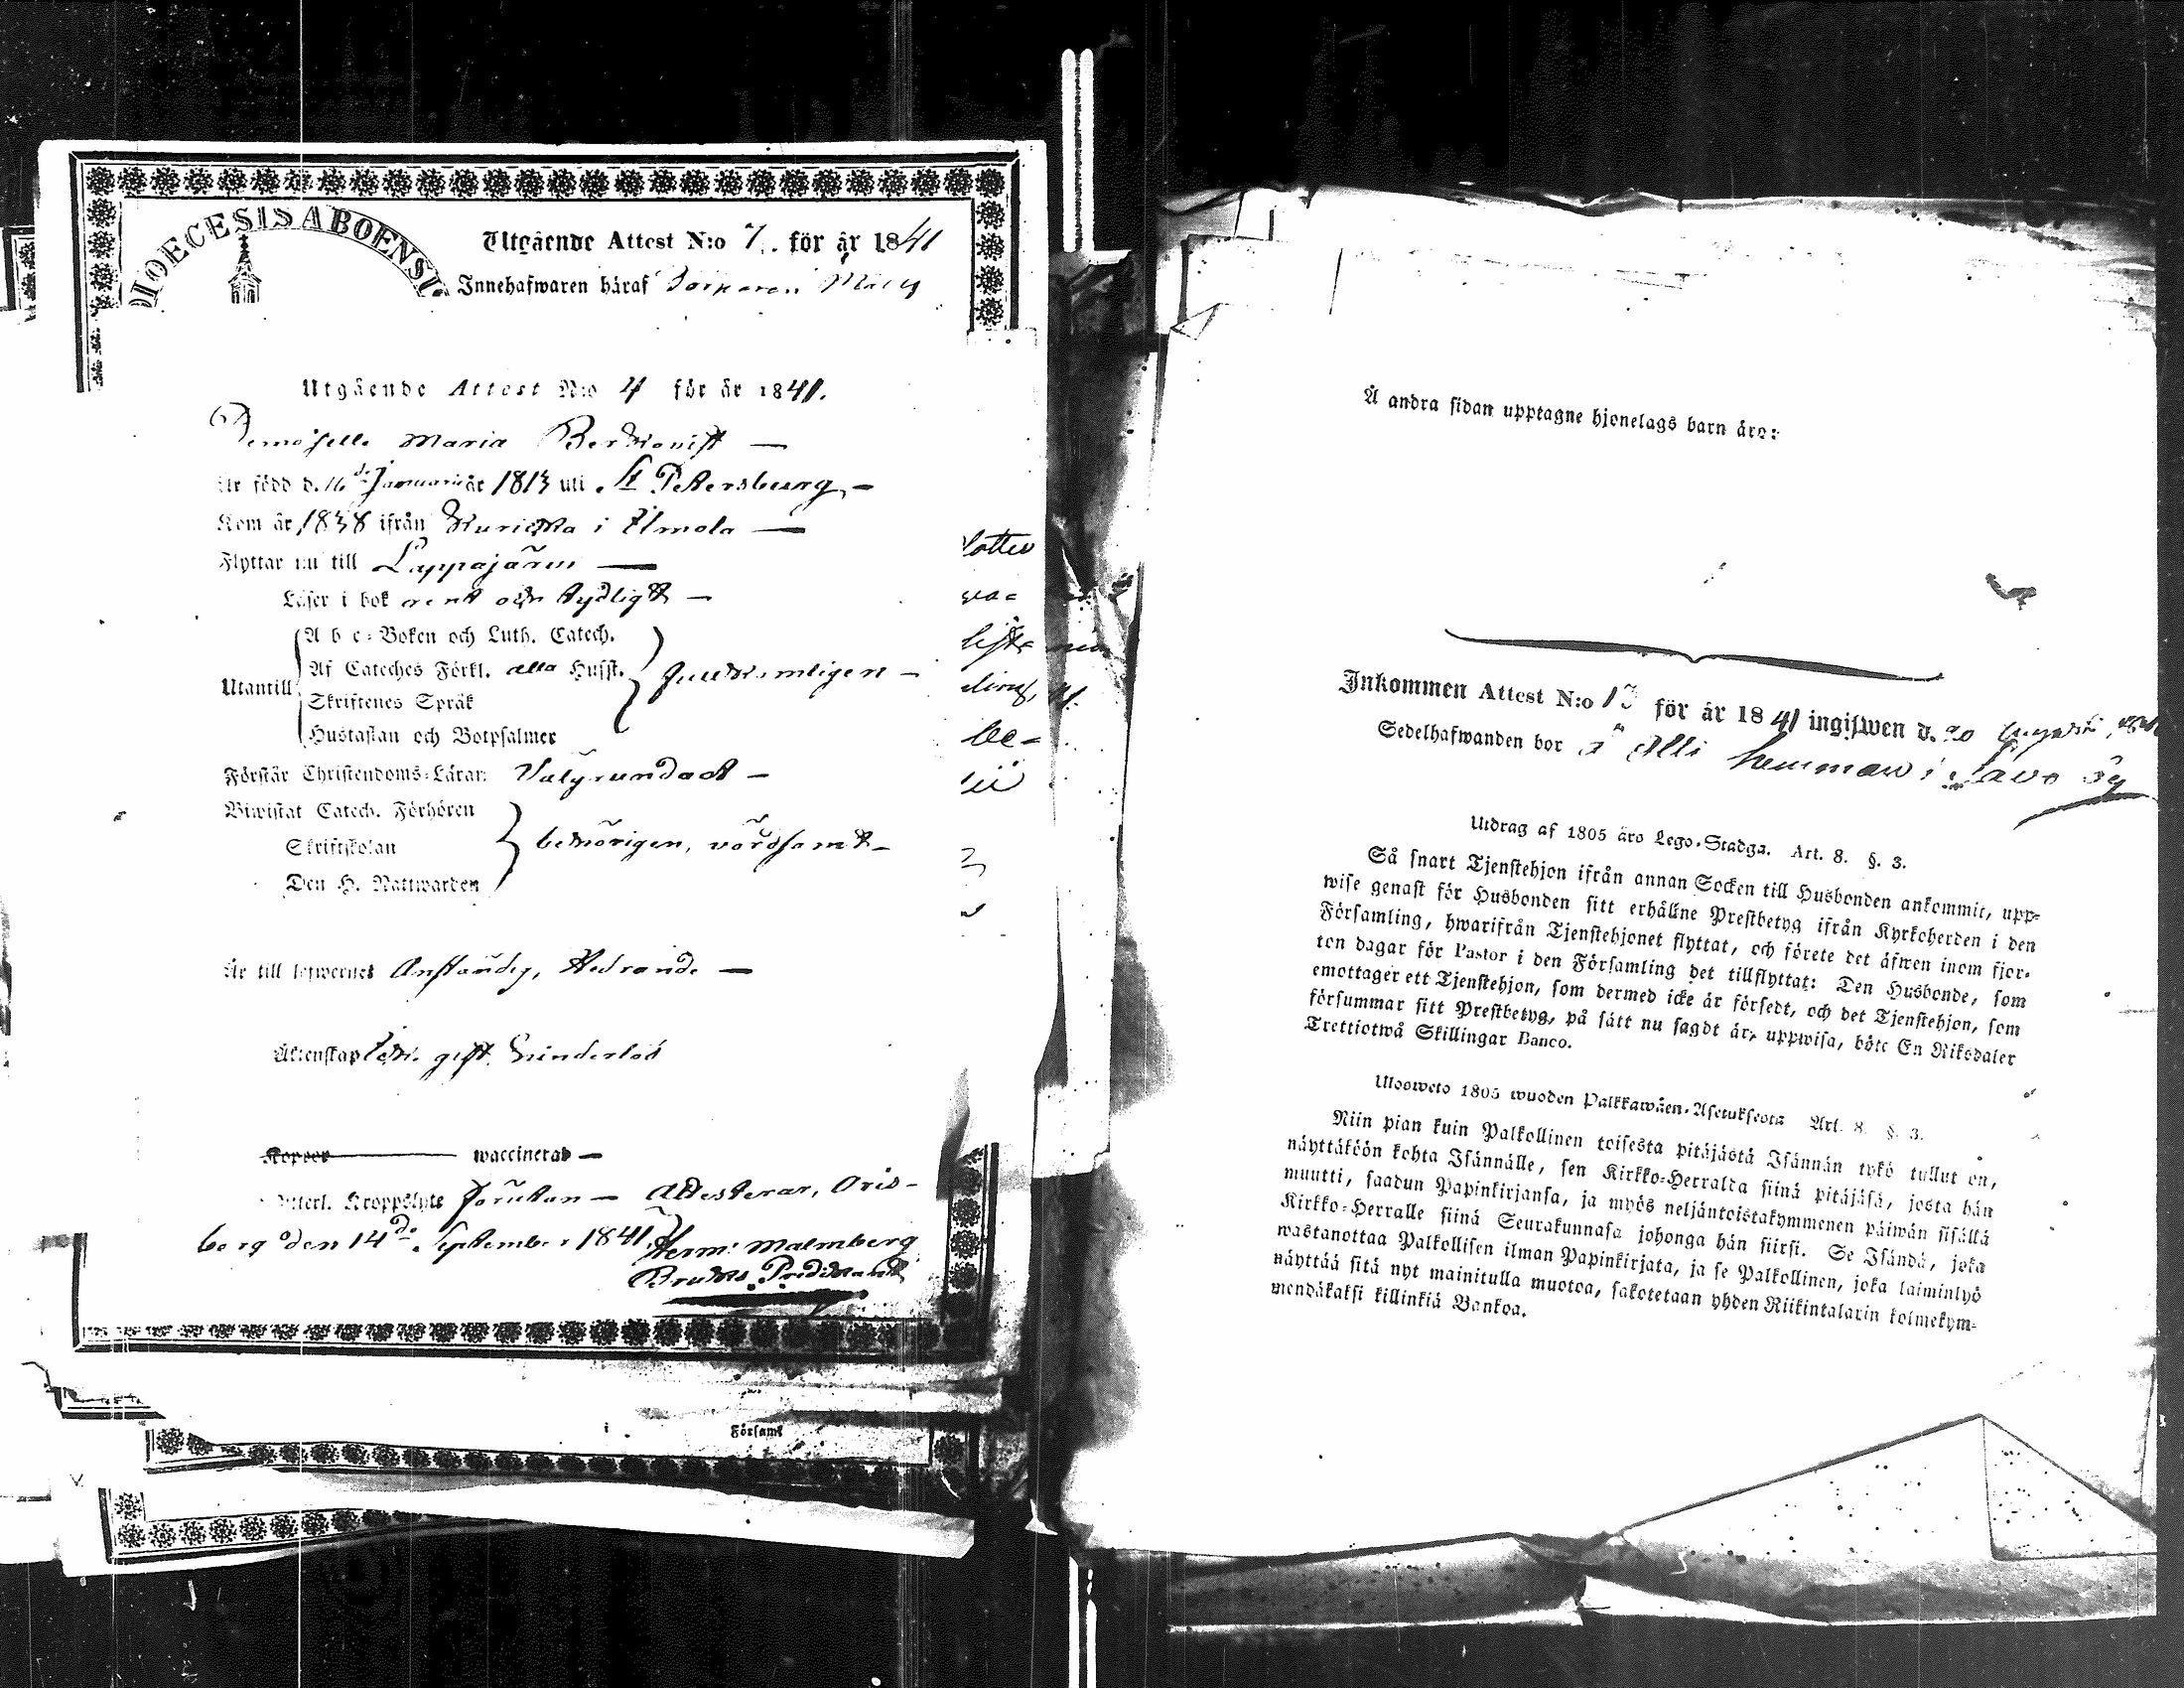 DIOECESIS ABOENSIS
Utgående Attest N:o 7. för år 1841
Innehafwaren häraf
Utgående Attest N:o 4 för år 1841.
Demoiselle Maria
Är född d. 16de Januarii år 1813 uti St Petersburg, –
Kom år 1838 ifrån Kurikka i Ilmola —
Flyttar nu till Lappajärvi —
Läser i bok rent och tydligt –
Abc-Boken och Luth. Catech.
Af Cateches Förkl. alla Husst.
Utantill
Skriftenes Språk
Hustaflan och Botpsalmer
Förstår Christendoms-Läran
Biwistat Catech. Förhören
Skriftskolan
behörigen, vördsamt –
Den H. Nattwarden
Är till lefwernet Anständig, Hedrande —
Äktenskap
Koppor waccinerad —
Kroppslyte förutan — Attesterar, Oris-
berg den 14de September 1841. Herm: Malmberg
Bruks Predikant
i Församl
Å andra sidan upptagne hjonelags barn äro:
Inkommen Attest N:o för år 1841 ingifwen d. 20
Sedelhafwanden bor å Alli hemman i
Utdrag af 1805 års Lego-Stadga. Art. 8. §. 3.
Så snart Tjenstehjon ifrån annan Socken till Husbonden ankommit, upp-
wise genast för Husbonden sitt erhållne Prestbetyg ifrån Kyrkoherden i den
Församling, hwarifrån Tjenstehjonet flyttat, och förete det äfwen inom fjor-
ton dagar för Pastor i den Församling det tillflyttat: Den Husbonde, som
emottager ett Tjenstehjon, som dermed icke är försedt, och det Tjenstehjon, som
försummar sitt Prestbetyg, på sätt nu sagdt är, uppwisa, böte En Riksdaler
Trettiotwå Skillingar Banco.
Ulosweto 1805 wuoden Palkkawäen-Asetuksesta Art. 8. §. 3.
Niin pian kuin Palkollinen toisesta pitäjästä Isännän tykö tullut on,
näyttäköön kohta Isännälle, sen Kirkko-Herralta siinä pitäjäsä, josta hän
muutti, saadun Papinkirjansa, ja myös neljäntoistakymmenen päiwän sisällä
Kirkko-Herralle siinä Seurakunnasa johonga hän siirsi. Se Isändä, joka
wastanottaa Palkollisen ilman Papinkirjata, ja se Palkollinen, joka laiminlyö
näyttää sitä nyt mainitulla muotoa, sakotetaan yhden Riikintalarin kolmekym-
mendäkaksi killinkiä Bankoa.